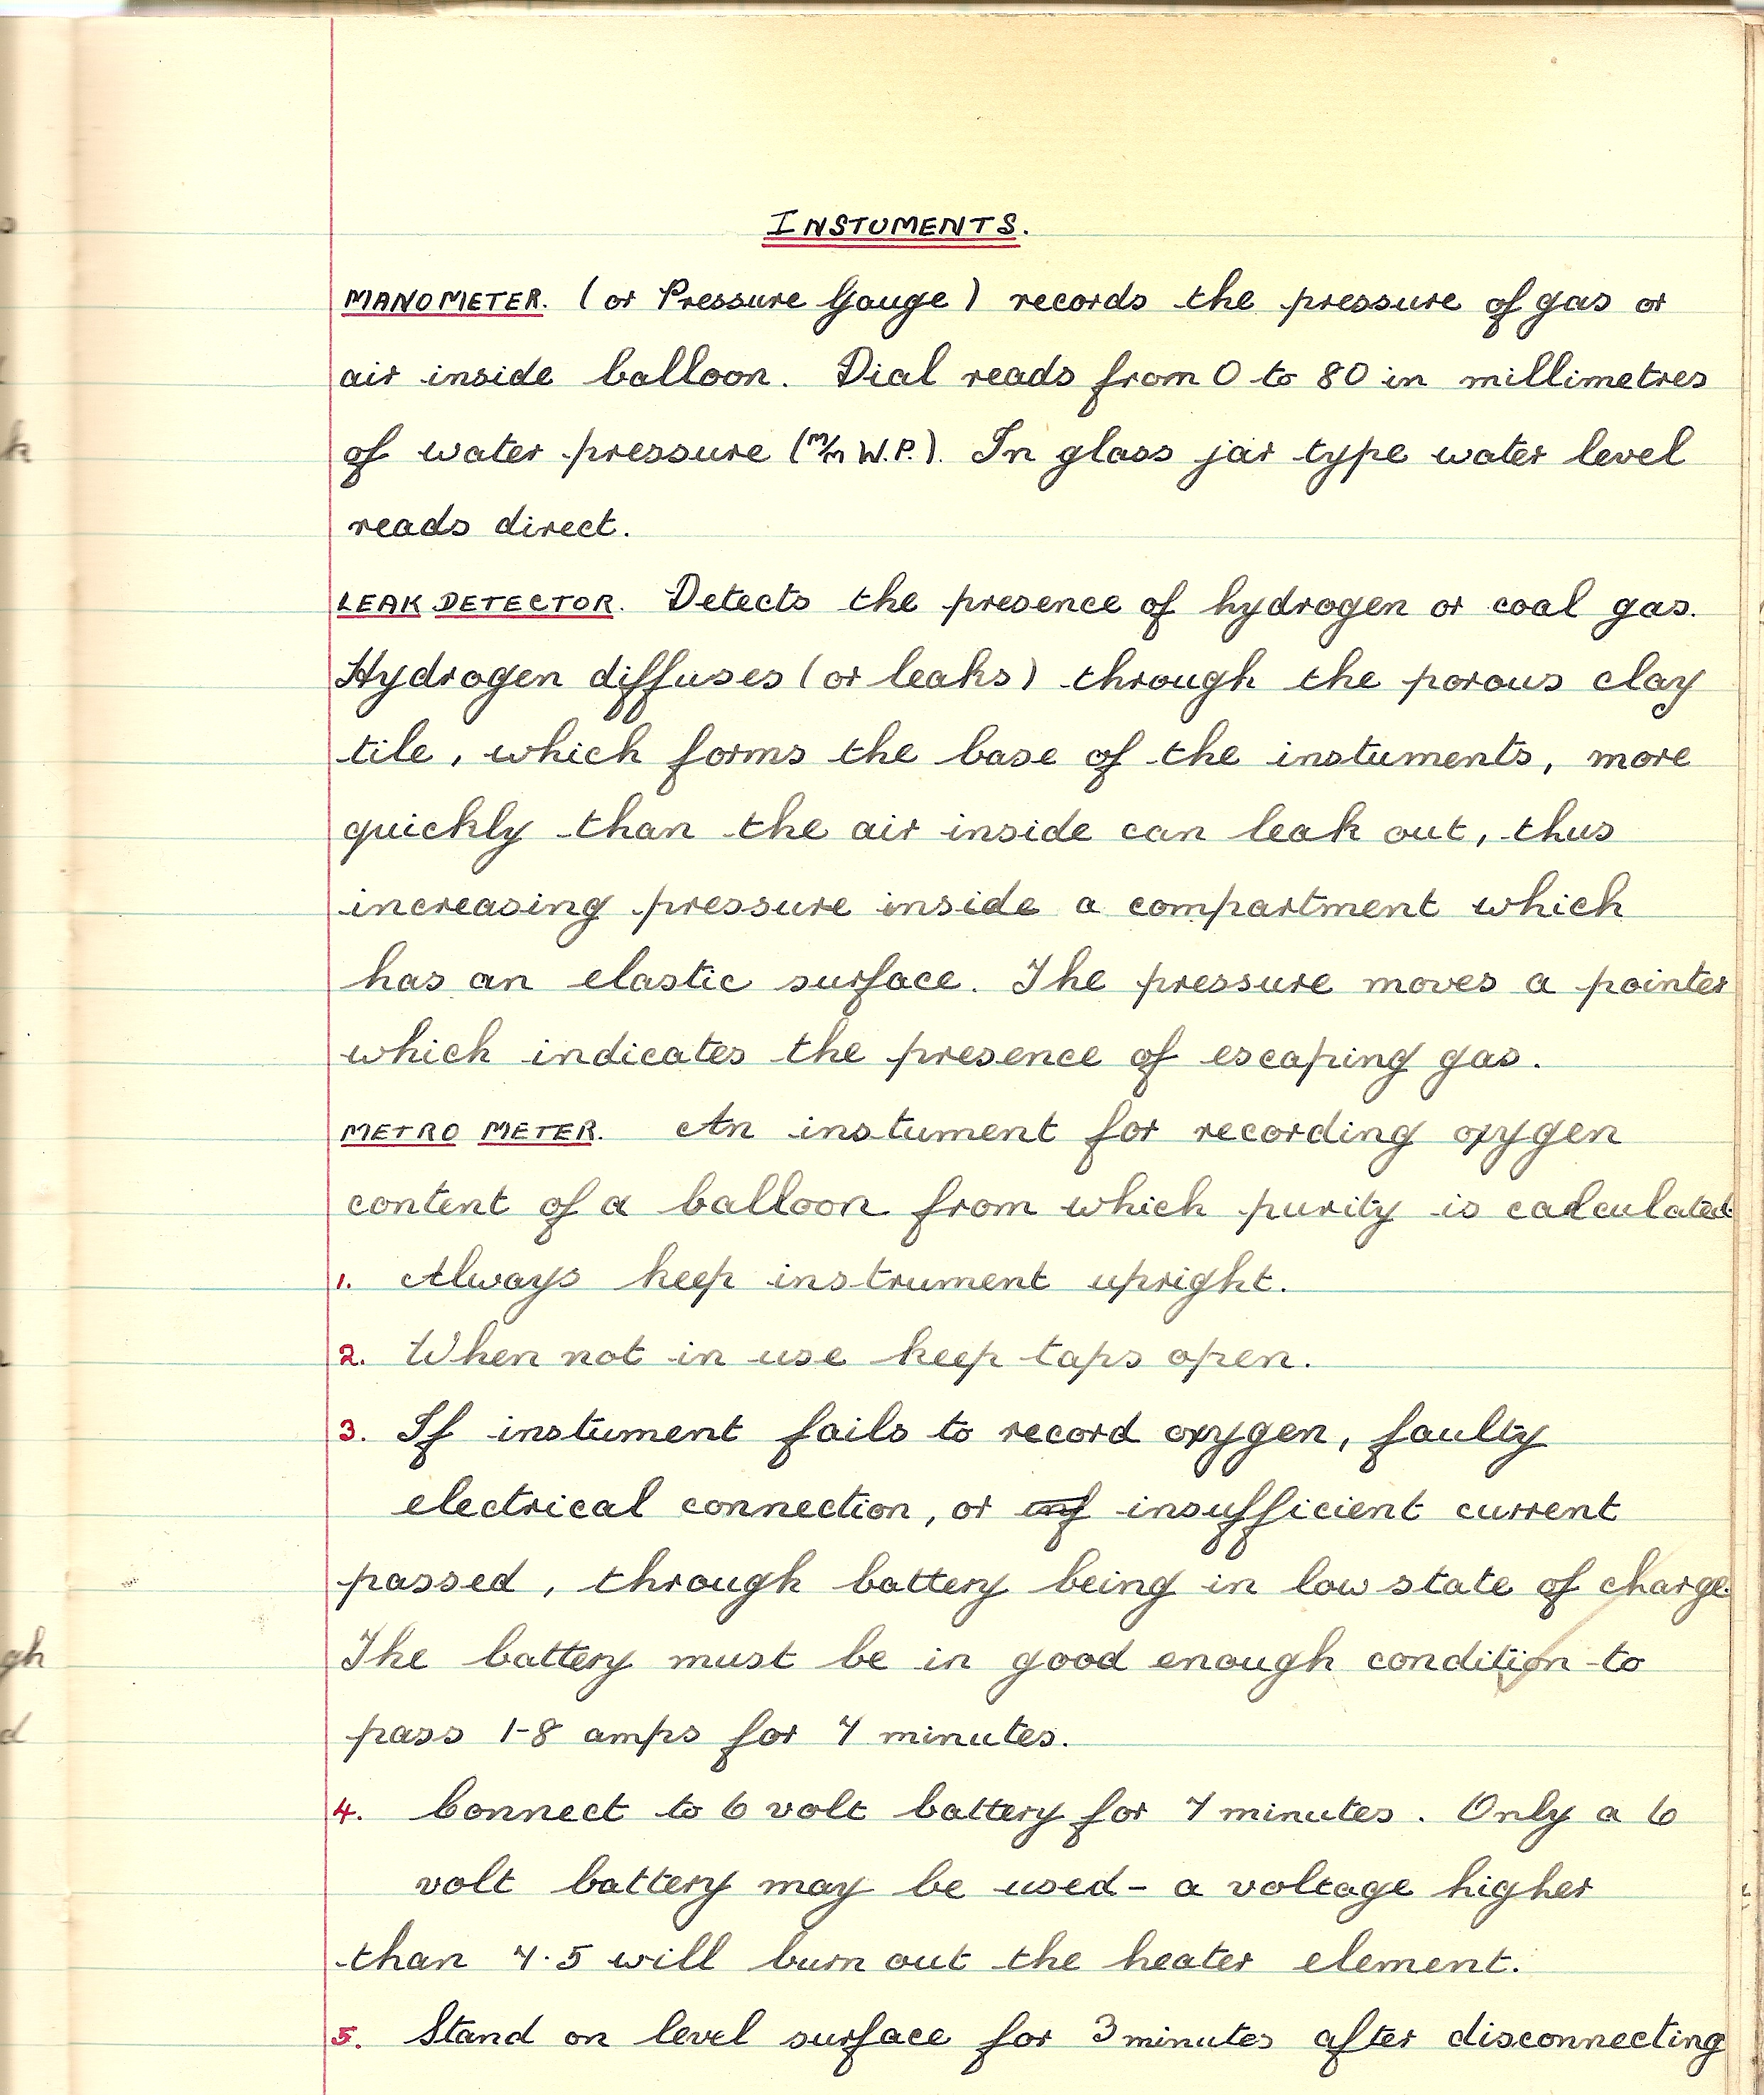 INSTUMENTS.
MANOMETER. (or Pressure Gauge) records the pressure of gas or
air inside balloon. Dial reads from 0 to 80 in millimetres
of water pressure (m/m W.P.). In glass jar type water level
reads direct.
LEAK DETECTOR. Detects the presence of hydrogen or coal gas.
Hydrogen diffuses (or leaks) through the porous clay
tile, which forms the base of the instuments, more
quickly than the air inside can leak out, thus
increasing pressure inside a compartment which
has an elastic surface. The pressure moves a pointer
which indicates the presence of escaping gas.
METRO METER. An instument for recording oxygen
content of a balloon from which purity is calculated
1. Always keep instrument upright.
2. When not in use keep taps open.
3. If instument fails to record oxygen, faulty
electrical connection, or inf insufficient current
passed, through battery being in low state of charge.
The battery must be in good enough condition to
pass 1-8 amps for 7 minutes.
4. Connect to 6 volt battery for 7 minutes. Only a 6
volt battery may be used - a voltage higher
than 7.5 will burn out the heater element.
5. Stand on level surface for 3 minutes after disconnecting
k
gh
d